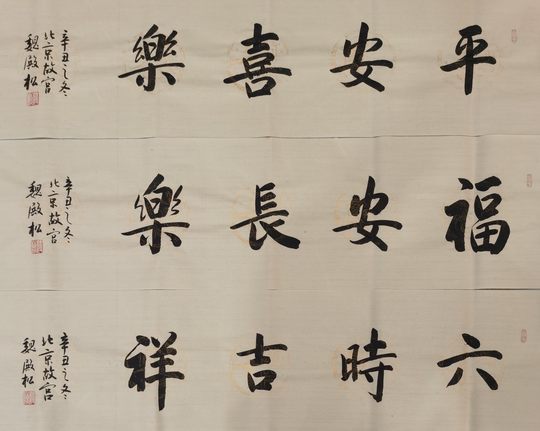 平安喜樂
辛丑之冬
北京故宮
魏殿松
福安長樂
辛丑之冬
北京故宮
魏殿松
六時吉祥
辛丑之冬
北京故宮
魏殿松